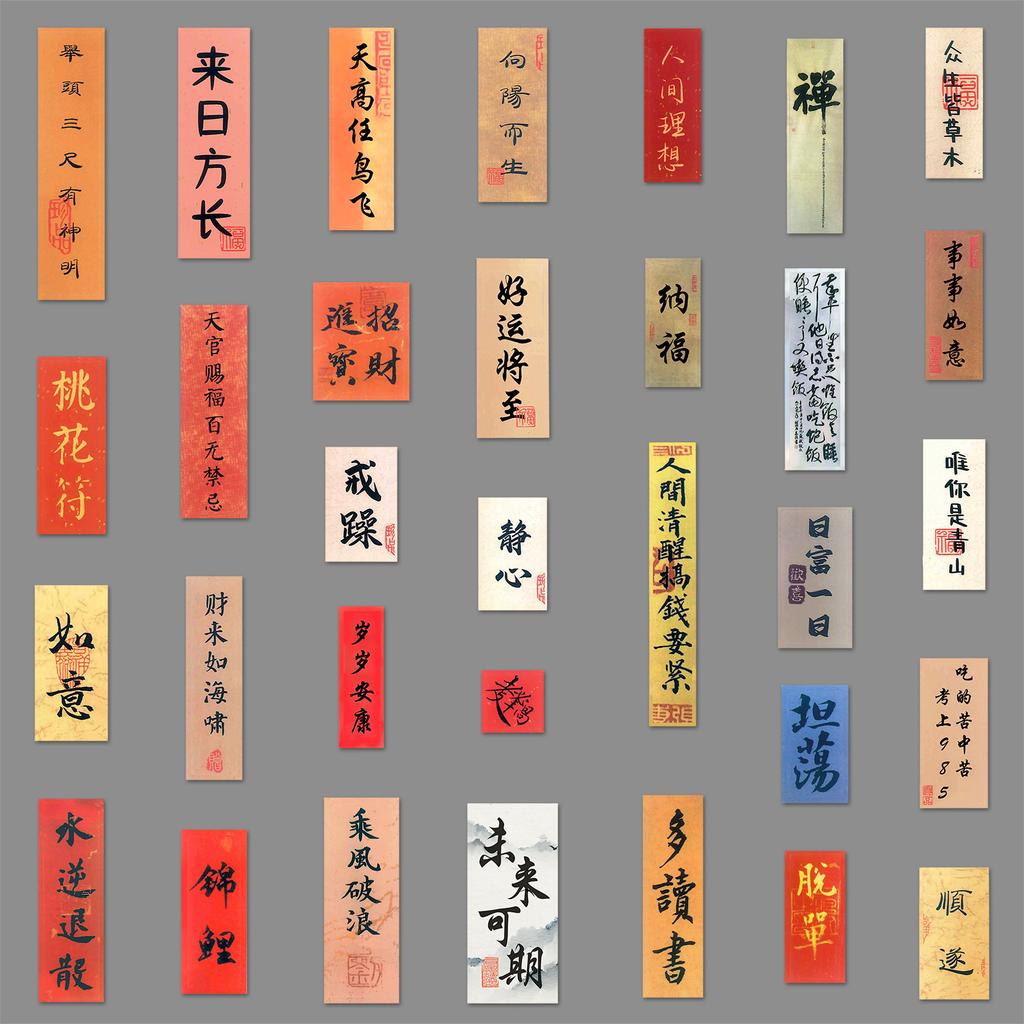 舉頭三尺有神明
桃花符
如意
水逆退散
来日方长
天官赐福百无禁忌
财来如海啸
錦鯉
天高任鸟飞
招財
進寶
戒躁
岁岁安康
乘風破浪
向陽而生
好运将至
静心
未来可期
人间理想
纳福
人間清醒搞錢要紧
多讀書
禪
平生不足惟饭与睡
他日得志当吃饱饭
便睡
又
饭
日富一日
歡喜
坦荡
脫單
众生皆草木
事事如意
唯你是青山
吃的苦中苦
考上985
順遂